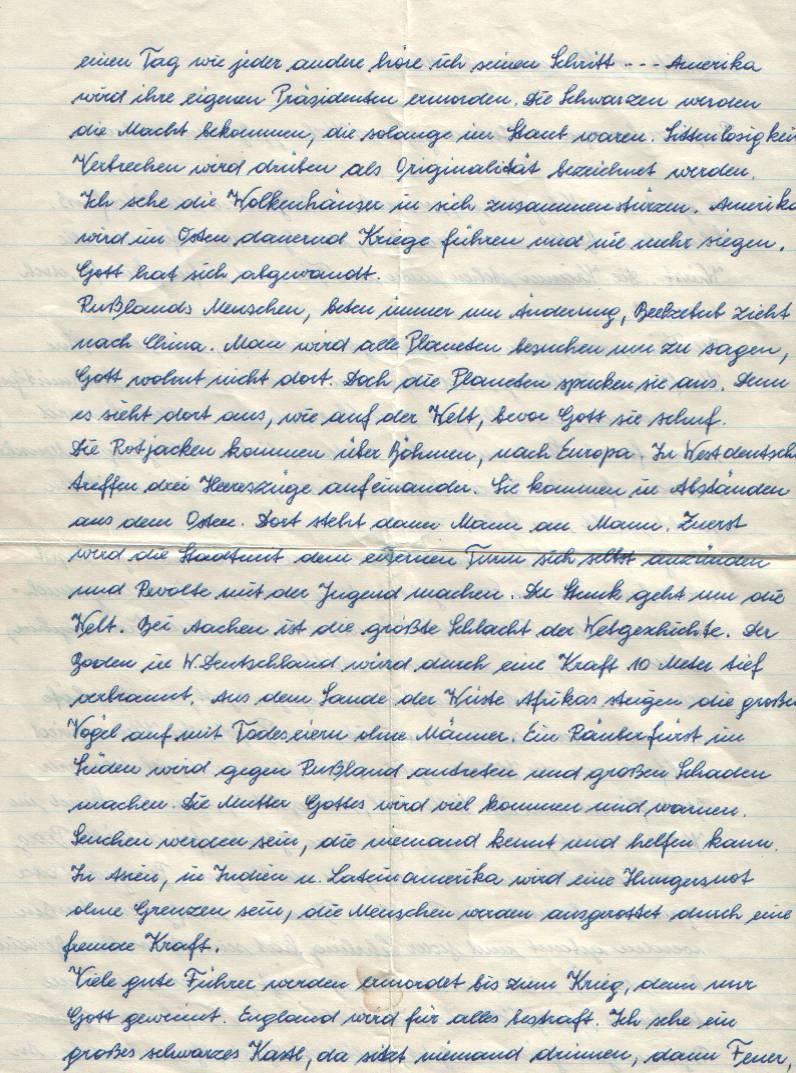 einen Tag wie jeder andere höre ich seinen Schritt --- Amerika
wird ihre eigenen Präsidenten ermorden. Die Schwarzen werden
die Macht bekommen, die solange im Staut waren. Sittenlosigkei
Verbrechen wird drüben als Originalität bezeichnet werden.
Ich sehe die Wolkenhäuser in sich zusammenstürzen. Amerika
wird im Osten dauernd Kriege führen und nie mehr siegen.
Gott hat sich abgewandt.
Rußlands Menschen, beten immer um Änderung, Beelzebub zieht
nach China. Man wird alle Planeten besuchen um zu sagen,
Gott wohnt nicht dort. Doch die Planeten spucken sie aus. Denn
es sieht dort aus, wie auf der Welt, bevor Gott sie schuf.
Die Rotjacken kommen über Böhmen, nach Europa. In Westdeutsch
treffen drei Heereszüge aufeinander. Sie kommen in Abständen
aus dem Osten. Dort steht dann Mann an Mann. Zuerst
wird die Stadt mit dem eisernen Turm sich selbst anzünden
und Revolte mit der Jugend machen. Der Stunk geht um die
Welt. Bei Aachen ist die größte Schlacht der Weltgeschichte. Der
Booden in W.Deutschland wird durch eine Kraft 10 Meter tief
verbrannt. Aus dem Sande der Wüste Afrikas steigen die große
Vögel auf mit Todeseiern ohne Männer. Ein Räuberfürst im
Süden wird gegen Rußland antreten und großen Schaden
machen. Die Mutter Gottes wird viel kommen und warnen.
Seuchen werden sein, die niemand kennt und helfen kann.
In Asien, in Indien u. Lateinamerika wird eine Hungersnot
ohne Grenzen sein, die Menschen werden ausgerottet durch eine
fremde Kraft.
Viele gute Führer werden ermordet bis zum Krieg, denn nur
Gott gewinnt. England wird für alles bestraft. Ich sehe ein
großes schwarzes Kastl, da sitzt niemand drinnen, dann Feuer,